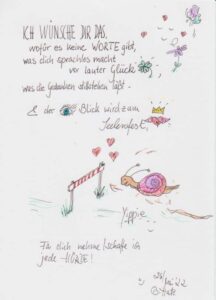 ICH WÜNSCHE DIR DAS,
wofür es keine WORTE gibt,
was dich sprachlos macht
vor lauter Glück
was die Gedanken stillstehen läßt
& der Blick wird zum
Seelenfest,
Yippie
Für dich nehme ich
jede HÜRDE!